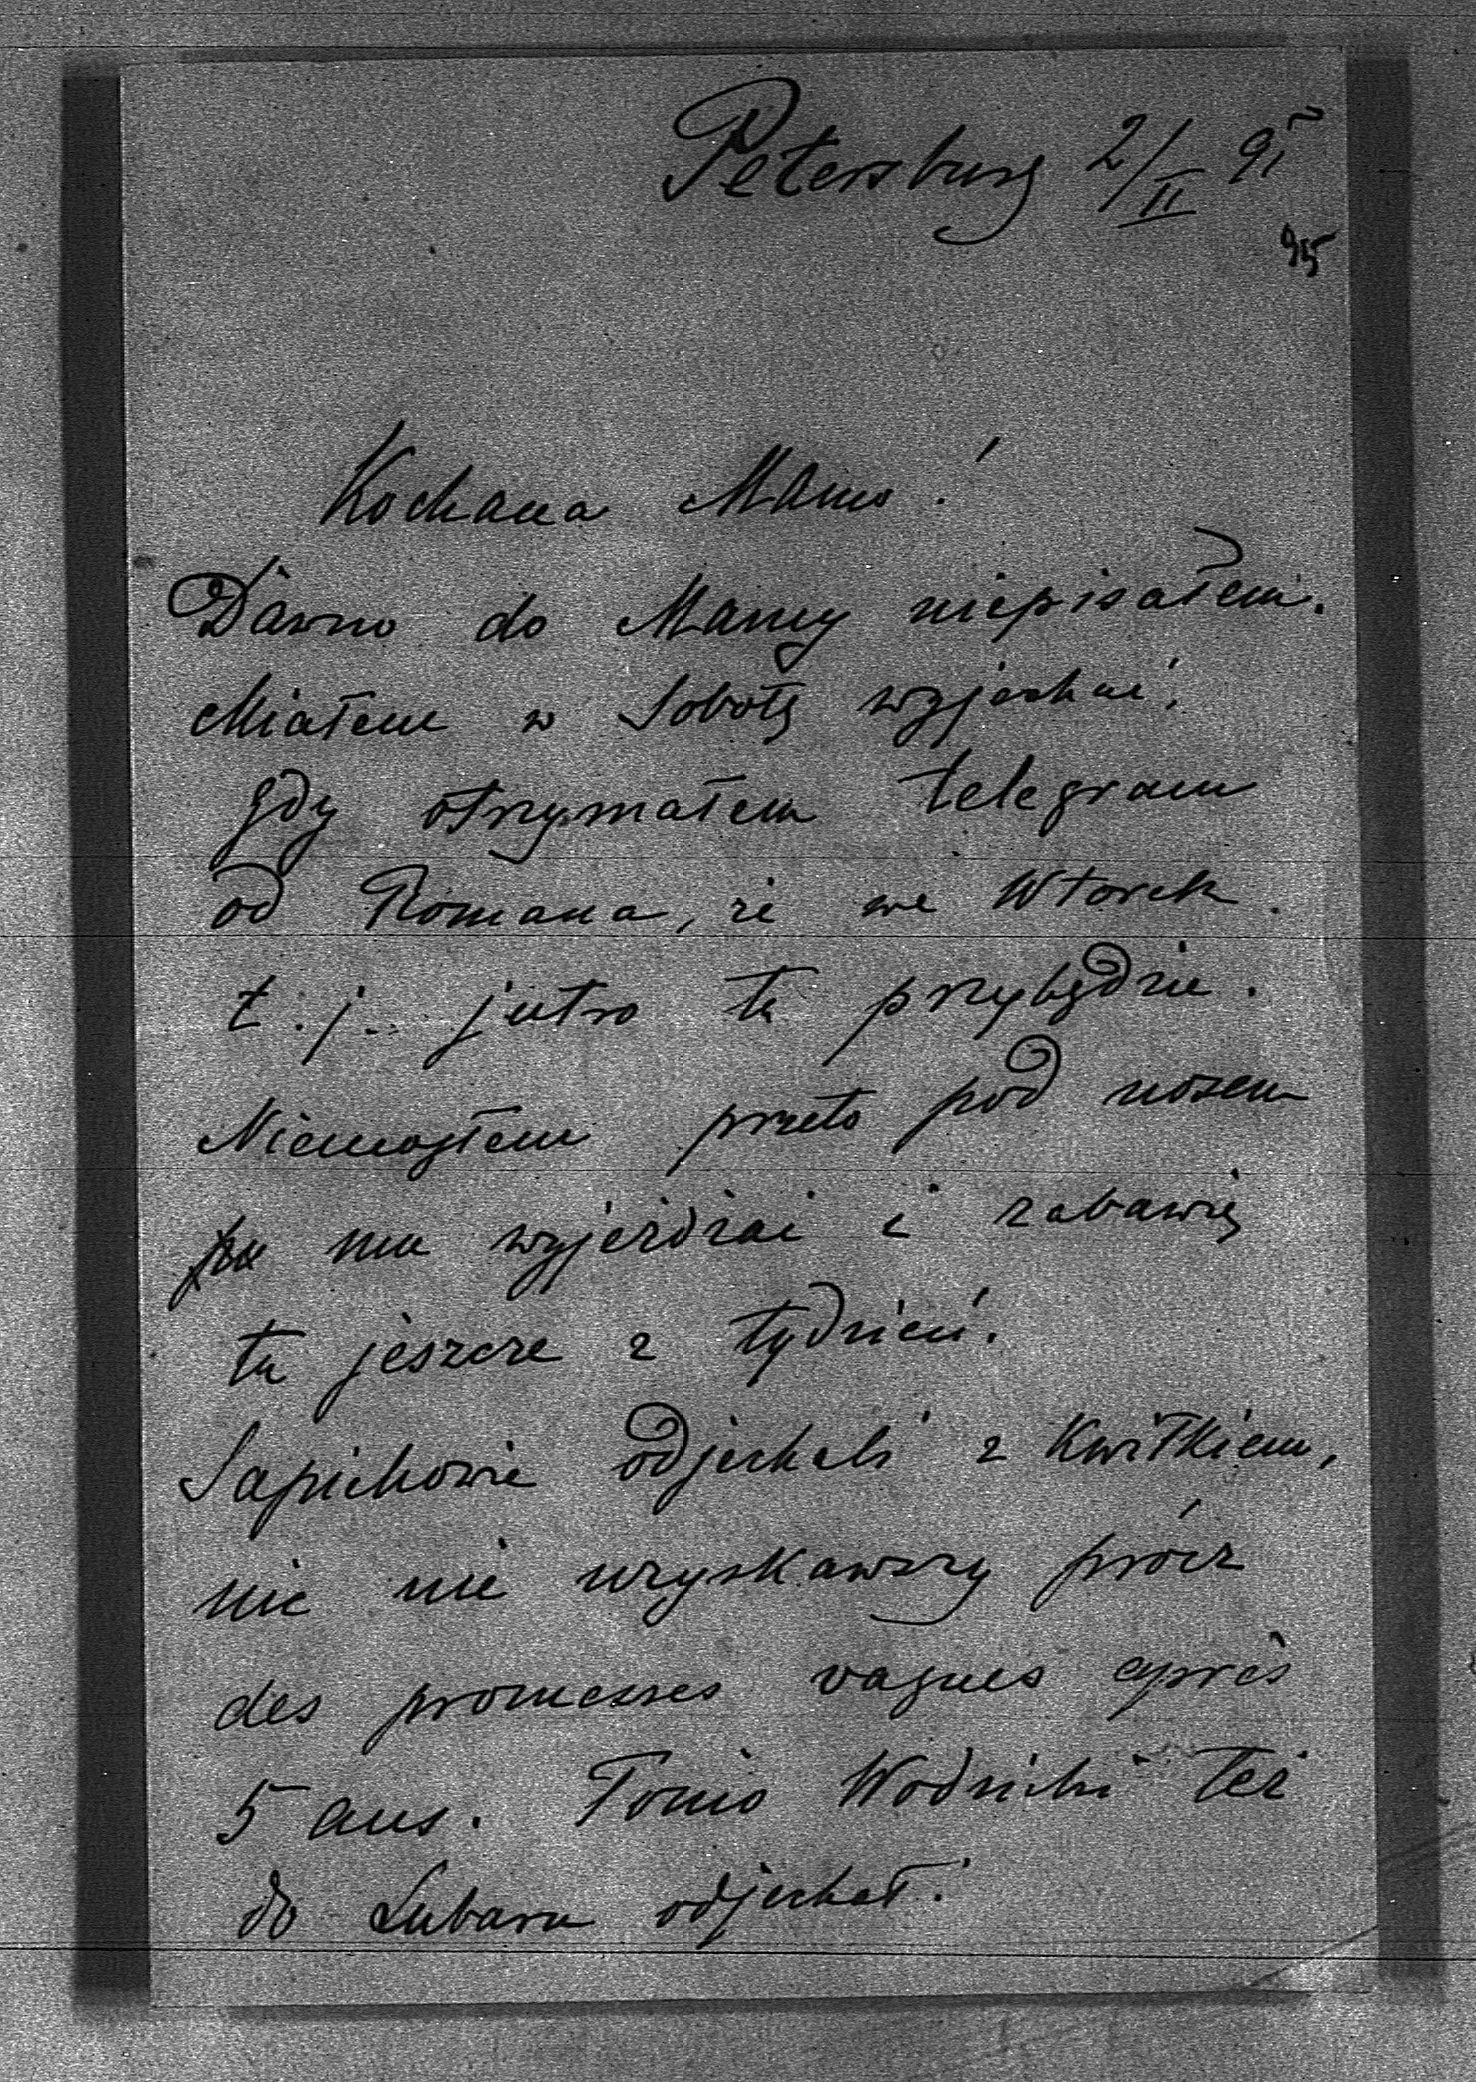 Petersburg 2/II 95
95
Kochana Mamo!
Dawno do Mamy niepisałem.
Miałem w Sobotę wyjechać,
gdy otrzymałem telegram
od Romana, że we Wtorek
t.j. jutro tu przybędzie.
Niemogłem przeto pod nosem
mu wyjeżdżać i zabawię
tu jeszcze z tydzień.
Sapiehowie odjechali z Kwitkiem,
nic nie uzyskawszy prócz
des promesses vagues après
5 ans. Tonio Wodzicki też
do Lubara odjechał.